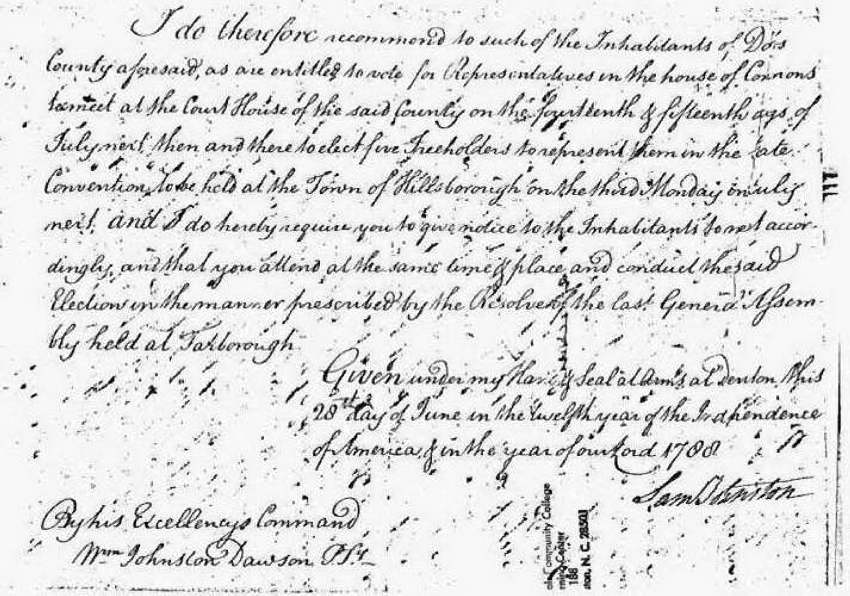 I do therefore recommend to such of the Inhabitants of Dobs
County aforesaid, as are entitled to vote for Representatives in the house of Commons
to meet at the Court House of the said County on the fourteenth & fifteenth days of
July next, then and there to elect five Freeholders to represent them in the State
Convention, to be held at the Town of Hillsborough on the third Monday in July
next, and I do hereby require you to give notice to the Inhabitants to meet accor-
dingly, and that you attend at the same time & place and conduct the said
Election in the manner prescribed by the Resolve of the last General Assem-
bly held at Tarborough
Given under my Hand & Seal at Arms, at Edenton, this
28th day of June in the twelfth year of the Independence
of America, & in the year of our Lord 1788
Sam Johnston
By his Excellencys Command
Wm Johnston Dawson P. Sy
117
Community College
Center
188
ton, N. C. 28501